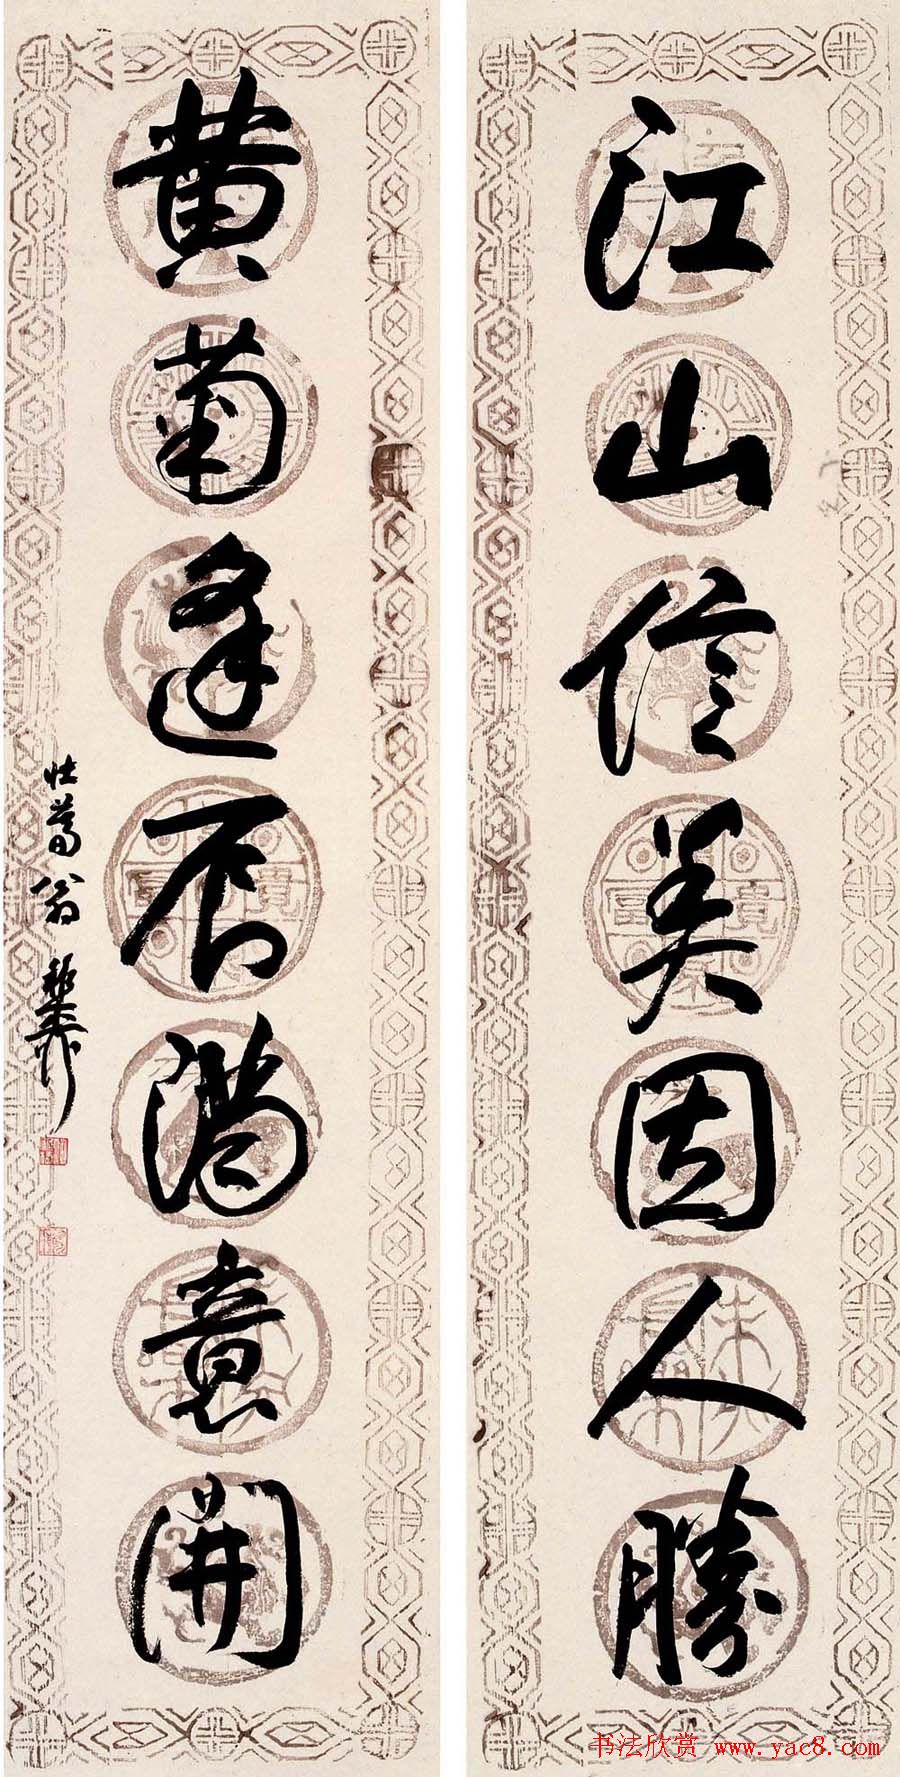 江山信美因人勝
黄菊逢辰滿意開
壯暮翁 稚柳
书法欣赏 www.yac8.com